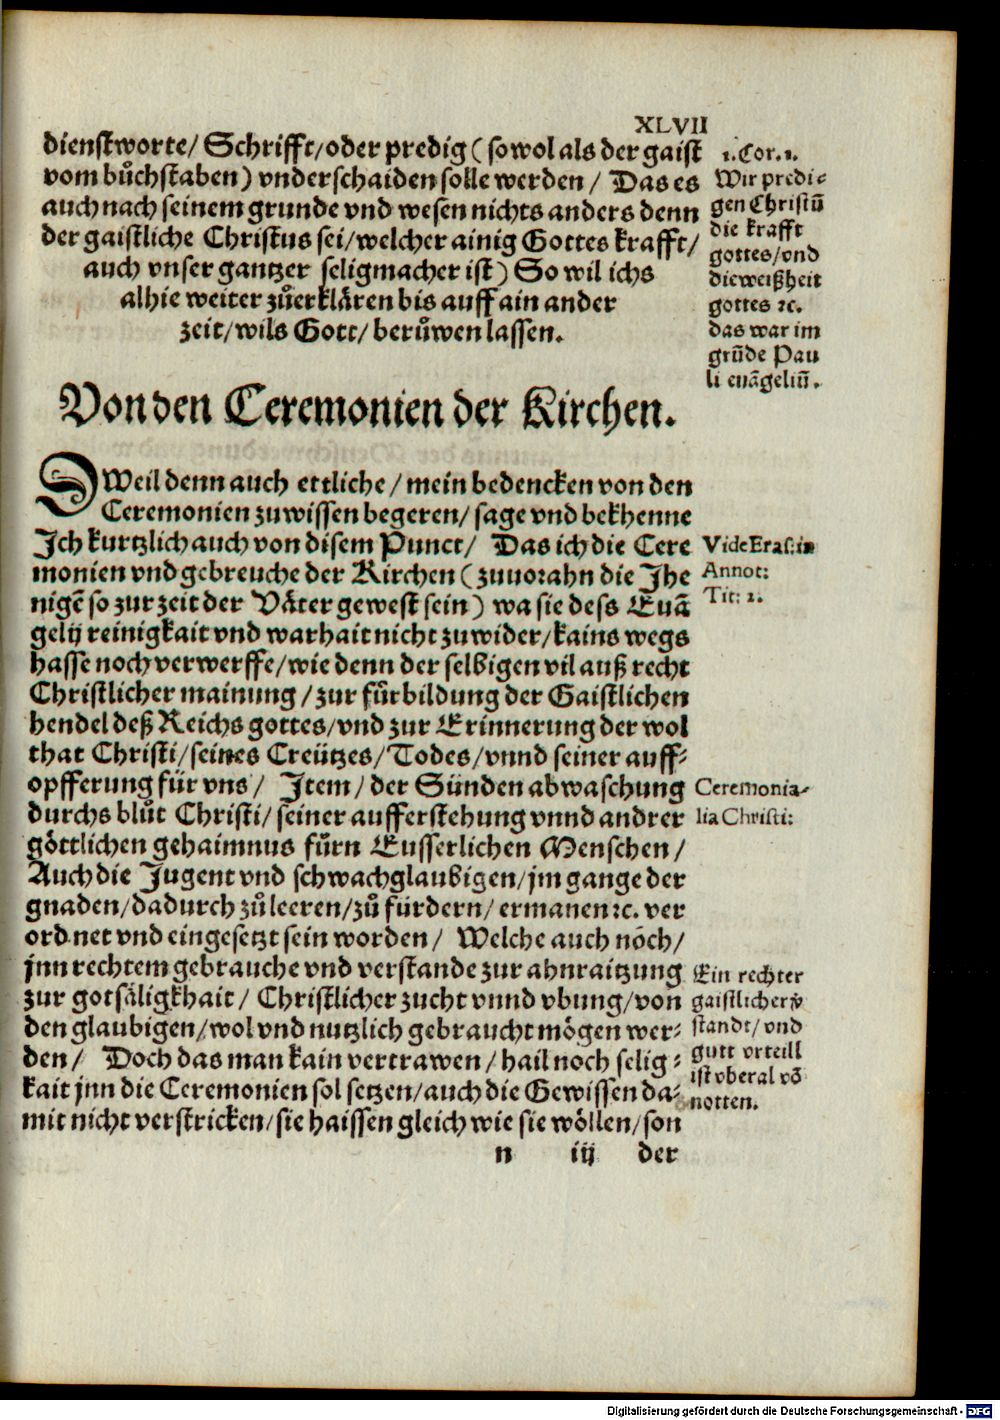 XLVII
dienstworte/ Schrifft/ oder predig (sowol als der gaist
vom bůchstaben) vnderschaiden solle werden/ Das es
auch nach seinem grunde vnd wesen nichts anders denn
der gaistliche Christus sei/ welcher ainig Gottes krafft/
auch vnser gantzer seligmacher ist) So wil ichs
alhie weiter zůerklären bis auff ain ander
zeit/ wils Gott/ berůwen lassen.
1. Cor. 1.
Wir predi-
gen Christū
die krafft
gottes/ vnd
die weißheit
gottes ꝛc.
das war im
grūde Pau
li euāgeliū.
Von den Ceremonien der Kirchen.
DWeil denn auch ettliche/ mein bedencken von den
Ceremonien zuwissen begeren/ sage vnd bekhenne
Ich kurtzlich auch von disem Punct/ Das ich die Cere
monien vnd gebreuche der Kirchen (zuuorahn die Jhe
nigē so zur zeit der Väter gewest sein) wa sie dess Euā
gelij reinigkait vnd warhait nicht zuwider/ kains wegs
hasse noch verwerffe/ wie denn der selbigen vil auß recht
Christlicher mainung/ zur fürbildung der Gaistlichen
hendel deß Reichs gottes/ vnd zur Erinnerung der wol
that Christi/ seines Creützes/ Todes/ vnnd seiner auff-
opfferung für vns/ Item/ der Sünden abwaschung
durchs blůt Christi/ seiner aufferstehung vnnd andrer
göttlichen gehaimnus fürn Eusserlichen Menschen/
Auch die Jugent vnd schwachglaubigen/ jm gange der
gnaden/ dadurch zůleeren/ zů fürdern/ ermanen ꝛc. ver
ordnet vnd eingesetzt sein worden/ Welche auch nöch/
jnn rechtem gebrauche vnd verstande zur ahnraitzung
zur gotsäligkhait/ Christlicher zucht vnnd vbung/ von
den glaubigen/ wol vnd nutzlich gebraucht mögen wer-
den/ Doch das man kain vertrawen/ hail noch selig-
kait jnn die Ceremonien sol setzen/ auch die Gewissen da-
mit nicht verstricken/ sie haissen gleich wie sie wöllen/ son
Vide Eras: in
Annot:
Tit: 1.
Ceremonia-
lia Christi:
Ein rechter
gaistlicher v̄
standt/ vnd
gutt vrteill
ist vberal vō
notten.
n iij der
Digitalisierung gefördert durch die Deutsche Forschungsgemeinschaft - DFG